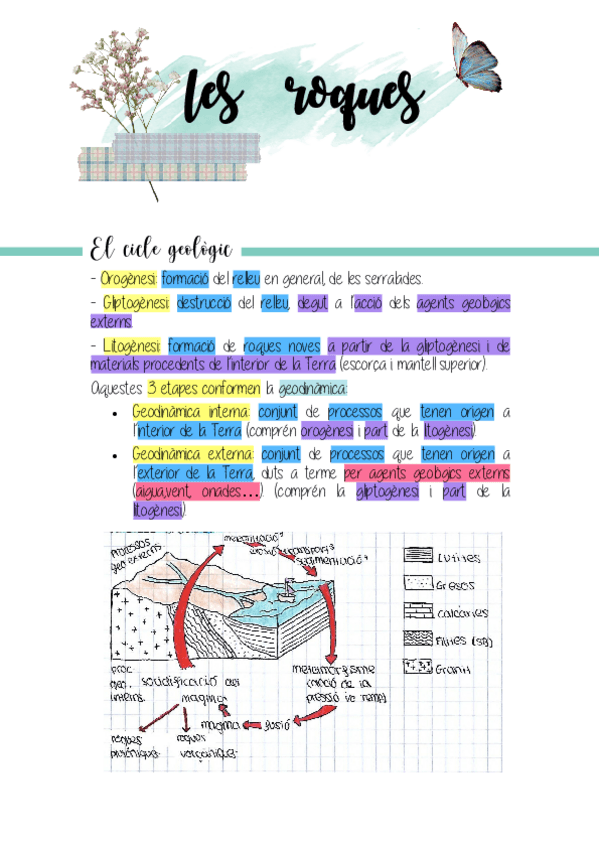 les roques
El cicle geològic
- Orogènesi: formació del relleu en general, de les serralades.
- Gliptogènesi: destrucció del relleu, degut a l'acció dels agents geològics
externs.
- Litogènesi: formació de roques noves a partir de la gliptogènesi i de
materials procedents de l'interior de la Terra (escorça i mantell superior).
Aquestes 3 etapes conformen la geodinàmica:
• Geodinàmica interna: conjunt de processos que tenen origen a
l'interior de la Terra (comprén orogènesi i part de la litogènesi).
• Geodinàmica externa: conjunt de processos que tenen origen a
l'exterior de la Terra, duts a terme per agents geològics externs
(aigua,vent, onades...). (comprén la gliptogènesi i part de la
litogènesi)
processos
geo externs
meteorització,
erosió, transport,
sedimentació
Lutites
Gresos
calcàries
Fil·lites
Granit
proc.
geo.
interns.
solidificació del
magma
metamorfisme
(acció de la
pressió i
magma
fusió
roques
roques
volcàniques